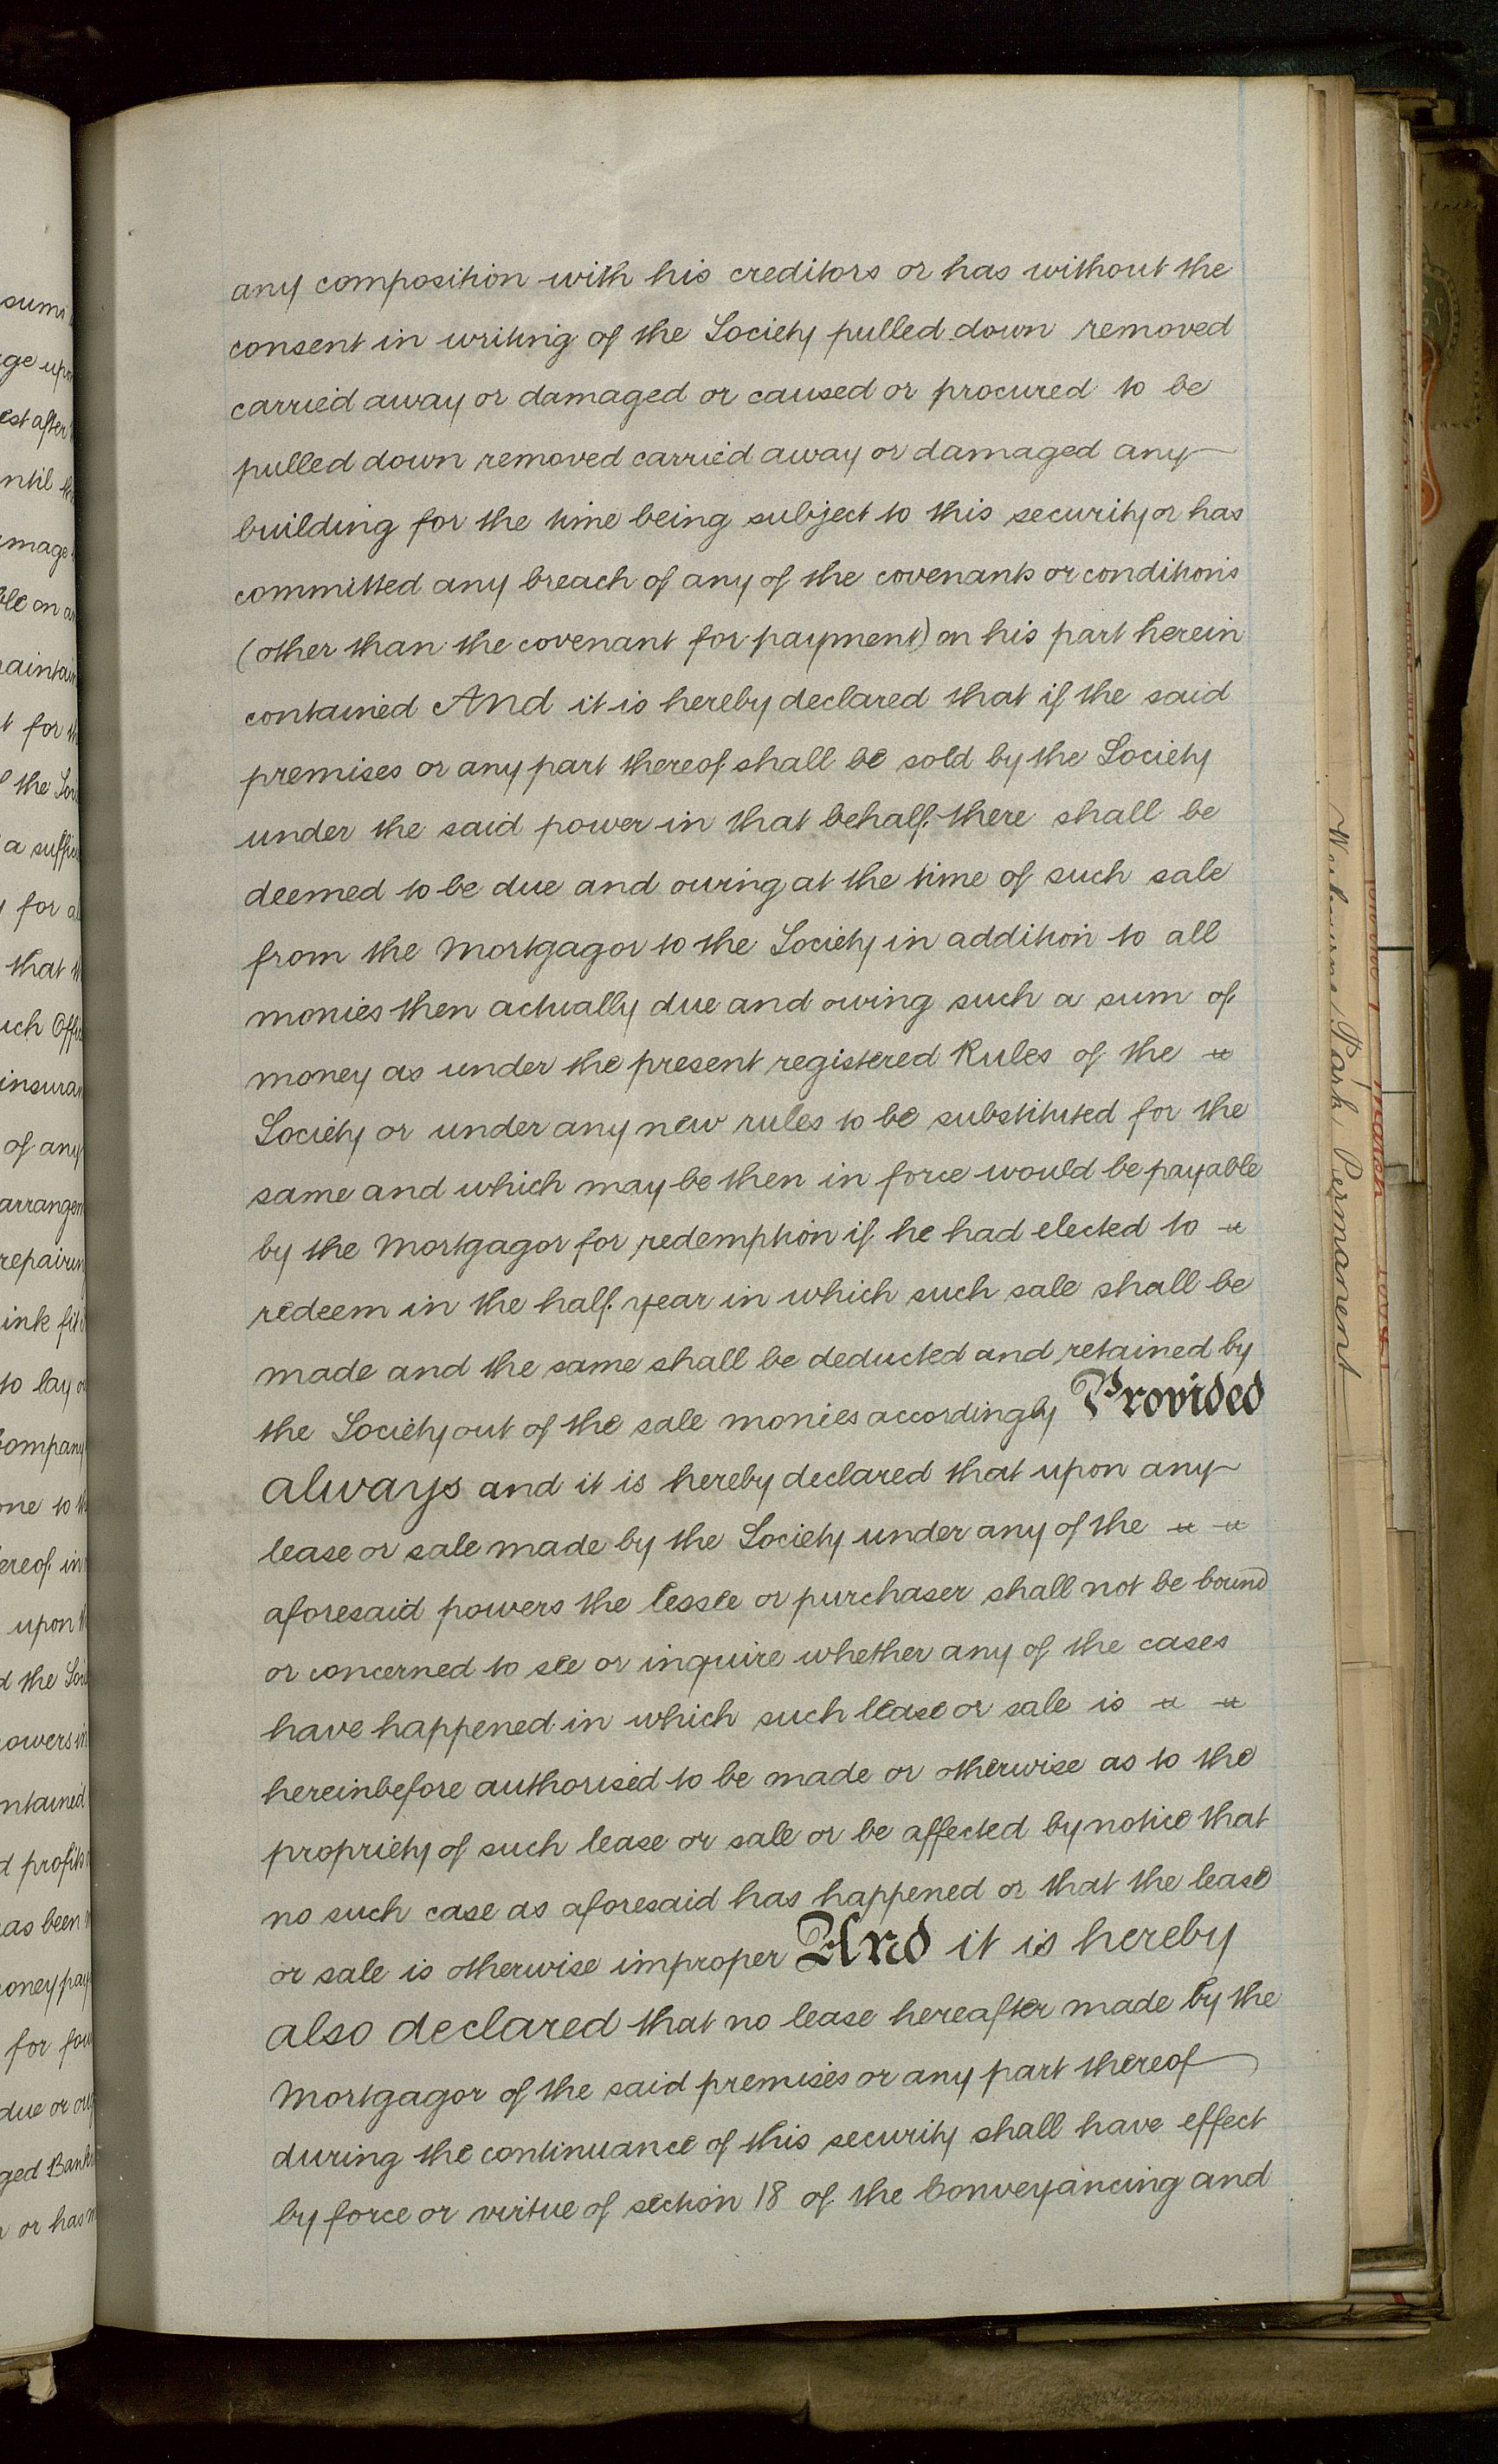 any composition with his creditors or has without the
consent in writing of the Society pulled down removed
carried away or damaged or caused or procured to be
pulled down removed carried away or damaged any
building for the time being subject to this security or has
committed any breach of any of the covenants or conditions
(other than the covenant for payment) on his part herein
contained And it is hereby declared that if the said
premises or any part thereof shall be sold by the Society
under the said power in that behalf there shall be
deemed to be due and owing at the time of such sale
from the Mortgagor to the Society in addition to all
monies then actually due and owing such a sum of
money as under the present registered Rules of the
Society or under any new rules to be substituted for the
same and which may be then in force would be payable
by the Mortgagor for redemption if he had elected to
redeem in the half year in which such sale shall be
made and the same shall be deducted and retained by
the Society out of the sale monies accordingly Provided
always and it is hereby declared that upon any
lease or sale made by the Society under any of the
aforesaid powers the lessee or purchaser shall not be bound
or concerned to see or inquire whether any of the cases
have happened in which such lease or sale is
hereinbefore authorised to be made or otherwise as to the
propriety of such lease or sale or be affected by notice that
no such case as aforesaid has happened or that the lease
or sale is otherwise improper And it is hereby
also declared that no lease hereafter made by the
Mortgagor of the said premises or any part thereof
during the continuance of this security shall have effect
by force or virtue of section 18 of the Conveyancing and
Park Permanent